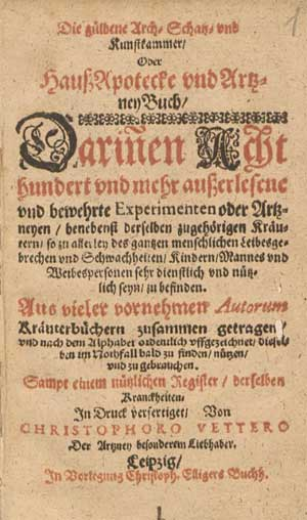 1
Die güldene Arch- Schatz- vnd
Kunstkammer/
Oder
Hauß Apotecke vnd Artz-
ney Buch/
Dariñen Acht
hundert vnd mehr außerlesene
vnd bewehrte Experimenten oder Artz-
neyen / benebenst derselben zugehörigen Kräu-
tern / so zu allerley des gantzen menschlichen Leibesge-
brechen vnd Schwachheiten / Kindern / Mannes vnd
Weibespersonen sehr dienstlich vnd nütz-
lich seyn / zu befinden.
Aus vieler vornehmen Autorum
Kräuterbüchern zusammen getragen /
vnd nach dem Alphabet ordentlich vffgezeichnet / diesel-
ben im Nothfall bald zu finden / nützen /
vnd zu gebrauchen.
Sampt einem nützlichen Register / derselben
Kranckheiten.
In Druck verfertiget / Von
CHRISTOPHORO VETTERO
Der Artzney besonderem Liebhaber.
Leipzig /
In Verlegung Christoph. Elligers Buchh.